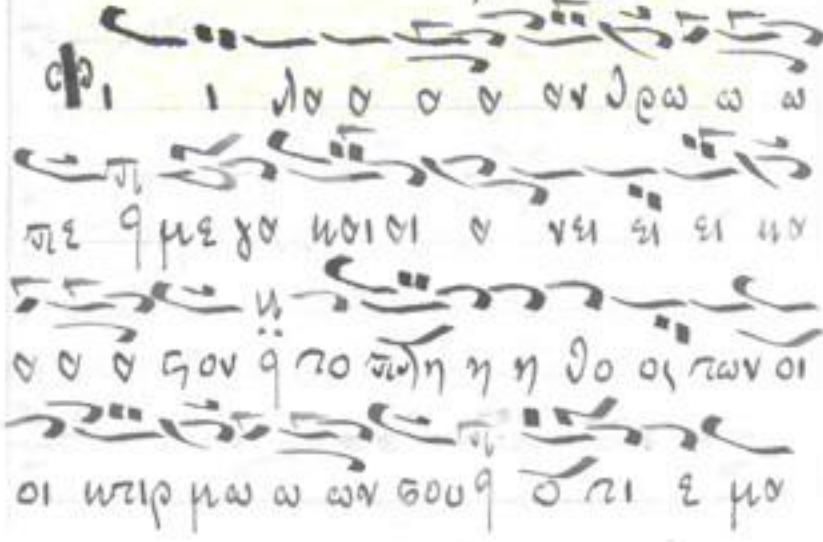 Φι ι λα α α α αν θρω ω ω
πε ϥ με γα και αι α νει ει ει κα
α α α στον ϥ το πλη η η θο ος των οι
οι κτιρ μω ω ων σου ϥ ο τι ε μα